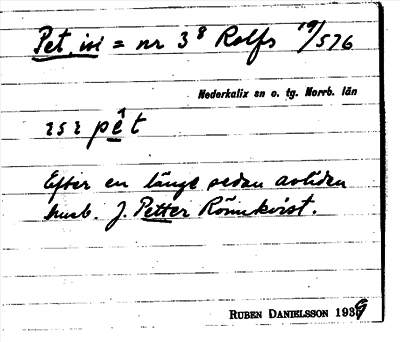 Pet, isi = nr 3⁸ Rolfs 19/576
Nederkalix sn o. tg. Norrb. län
pệt
Efter en länge sedan avliden
husb. J. Petter Rönnkvist.
RUBEN DANIELSSON 1939